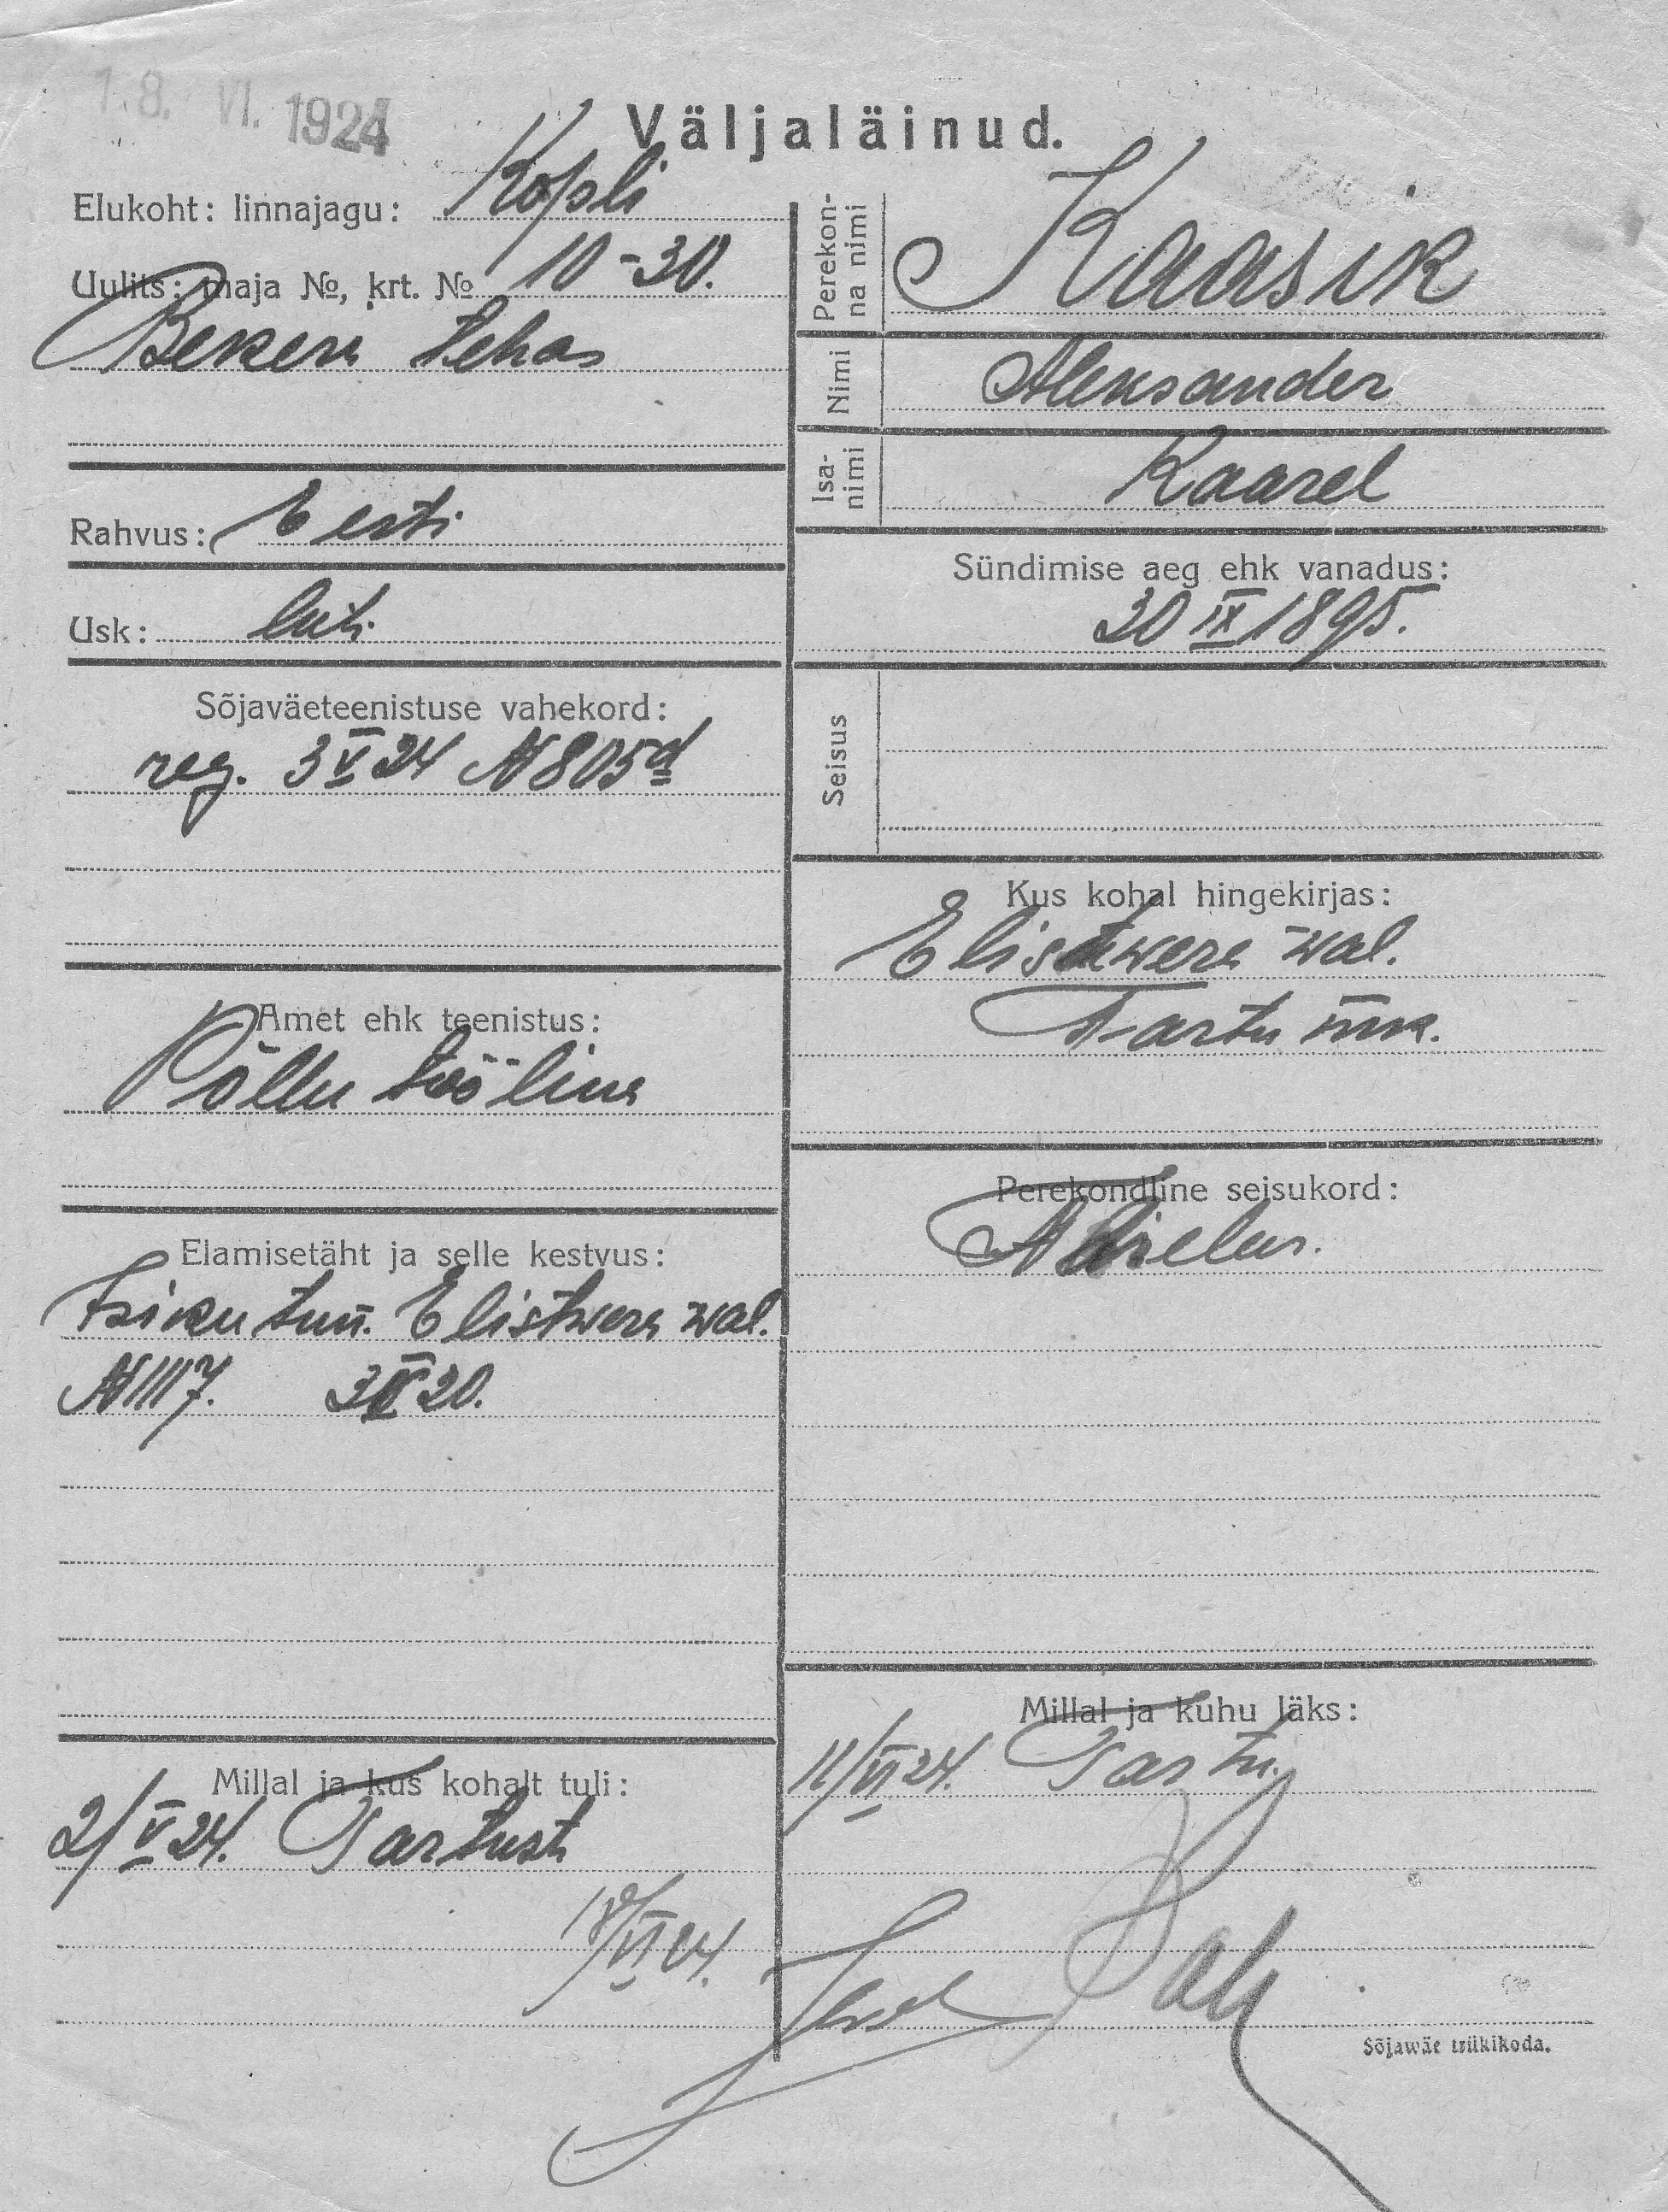 18. VI. 1924
Väljaläinud.
Elukoht: linnajagu: Kopli
Uulits: maja №, krt. № 10-30.
Bekeri tehas
Rahvus: Eesti
Usk: luth.
Sõjaväeteenistuse vahekord:
reg. 3 V 24 № 805 d
Amet ehk teenistus:
Põllu tööline
Elamisetäht ja selle kestvus:
Isiku tun. Elistwere wal.
№ 1117. 20.
Millal ja kus kohalt tuli:
2/V 24. Tartust
18/VI 24.
Perekonna nimi
Kaasik
Nimi
Aleksander
Isanimi
Kaarel
Sündimise aeg ehk vanadus:
30 IX 1895.
Seisus
Kus kohal hingekirjas:
Elistwere wal.
Tartu mk.
Perekondline seisukord:
Millal ja kuhu läks:
11/VI 24. Tartu.
Sõjawäe trükikoda.